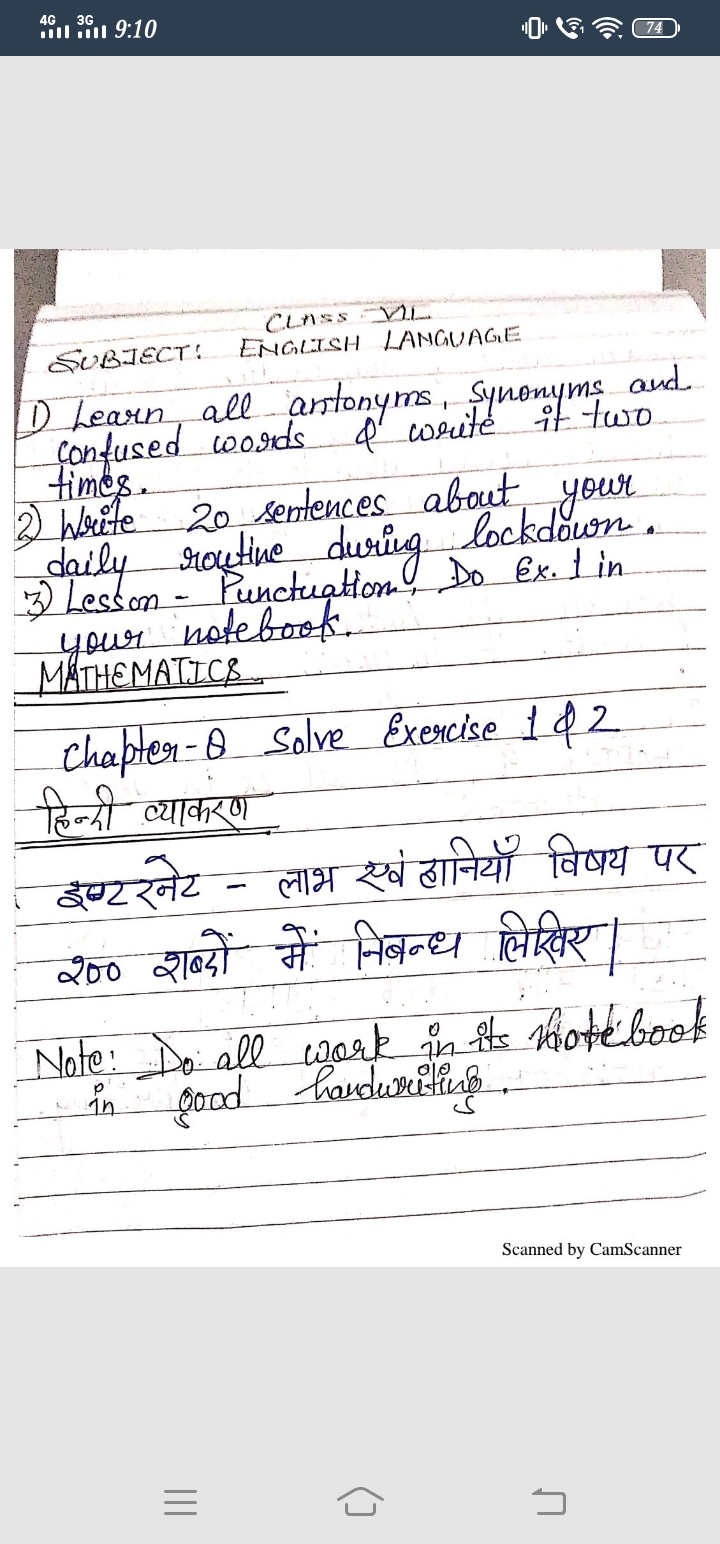 4G 3G 9:10 74
CLASS - VII
SUBJECT: ENGLISH LANGUAGE
1) Learn all antonyms, synonyms and
confused words & write it two
times.
2) Write 20 sentences about your
daily routine during lockdown.
3) Lesson - Punctuation, Do Ex. 1 in
your notebook.
MATHEMATICS
Chapter-8 Solve Exercise 1 & 2
हिन्दी व्याकरण
इण्टरनेट - लाभ एवं हानियाँ विषय पर
२०० शब्दों में निबन्ध लिखिए|
Note: Do all work in its notebook
in good handwriting.
Scanned by CamScanner